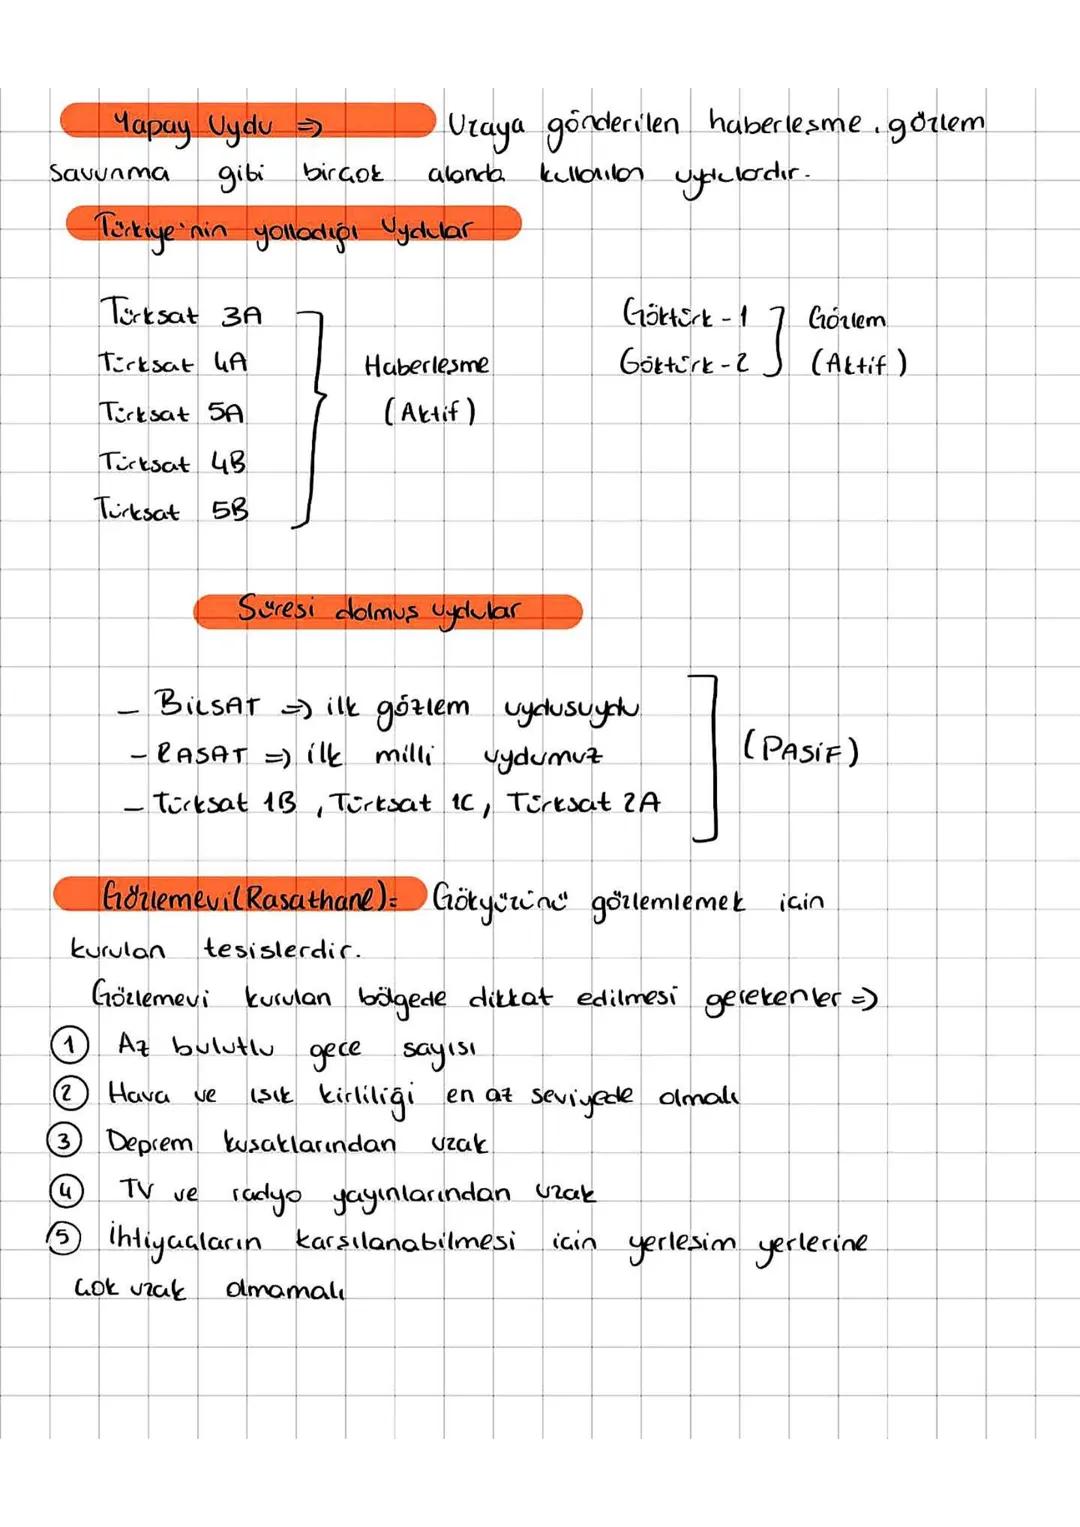 Yapay Uydu ⇒ Uzaya gönderilen haberleşme, gözlem
savunma gibi birçok alanda kullanılan uydulardır.
Türkiye'nin yolladığı Uydular
Türksat 3A
Türksat 4A
Türksat 5A
Türksat 4B
Türksat 5B
Haberleşme
(Aktif)
Göktürk-1
Göktürk-2
Gözlem
(Aktif)
Süresi dolmuş uydular
- BİLSAT ⇒ ilk gözlem uydusuydu
- RASAT ⇒ ilk milli uydumuz
- Türksat 1B, Türksat 1C, Türksat 2A
(PASİF)
Gözlemevi(Rasathane)= Gökyüzünü gözlemlemek için
kurulan tesislerdir.
Gözlemevi kurulan bölgede dikkat edilmesi gerekenler ⇒
1 Az bulutlu gece sayısı
2 Hava ve ışık kirliliği en az seviyede olmalı
3 Deprem kuşaklarından uzak
4 TV ve radyo yayınlarından uzak
5 İhtiyaçların karşılanabilmesi için yerleşim yerlerine
çok uzak olmamalı